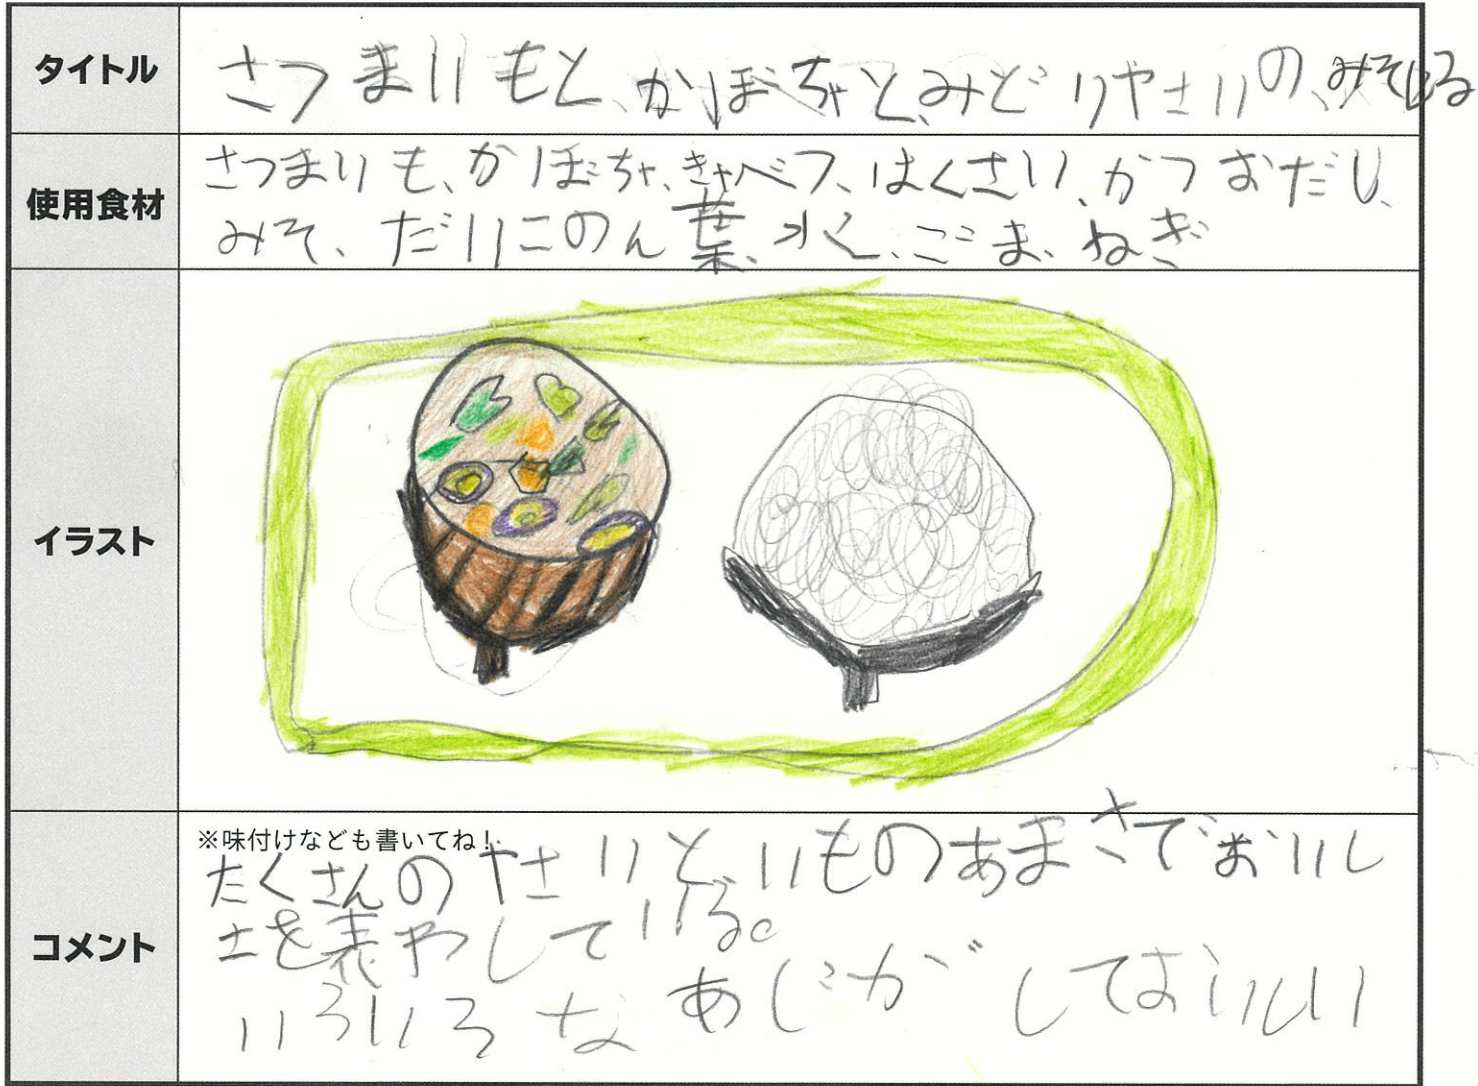 タイトル
さつまいもと、かぼちゃと、みどりやさいの、みそしる
使用食材
さつまいも、かぼちゃ、きゃべつ、はくさい、かつおだし、
みそ、だいこのん葉、水く、ごま、ねぎ
イラスト
コメント
※味付けなども書いてね!
たくさんのやさいと、いものあまさでおいし
さを表やしている。
いろいろなあじがしておいしい